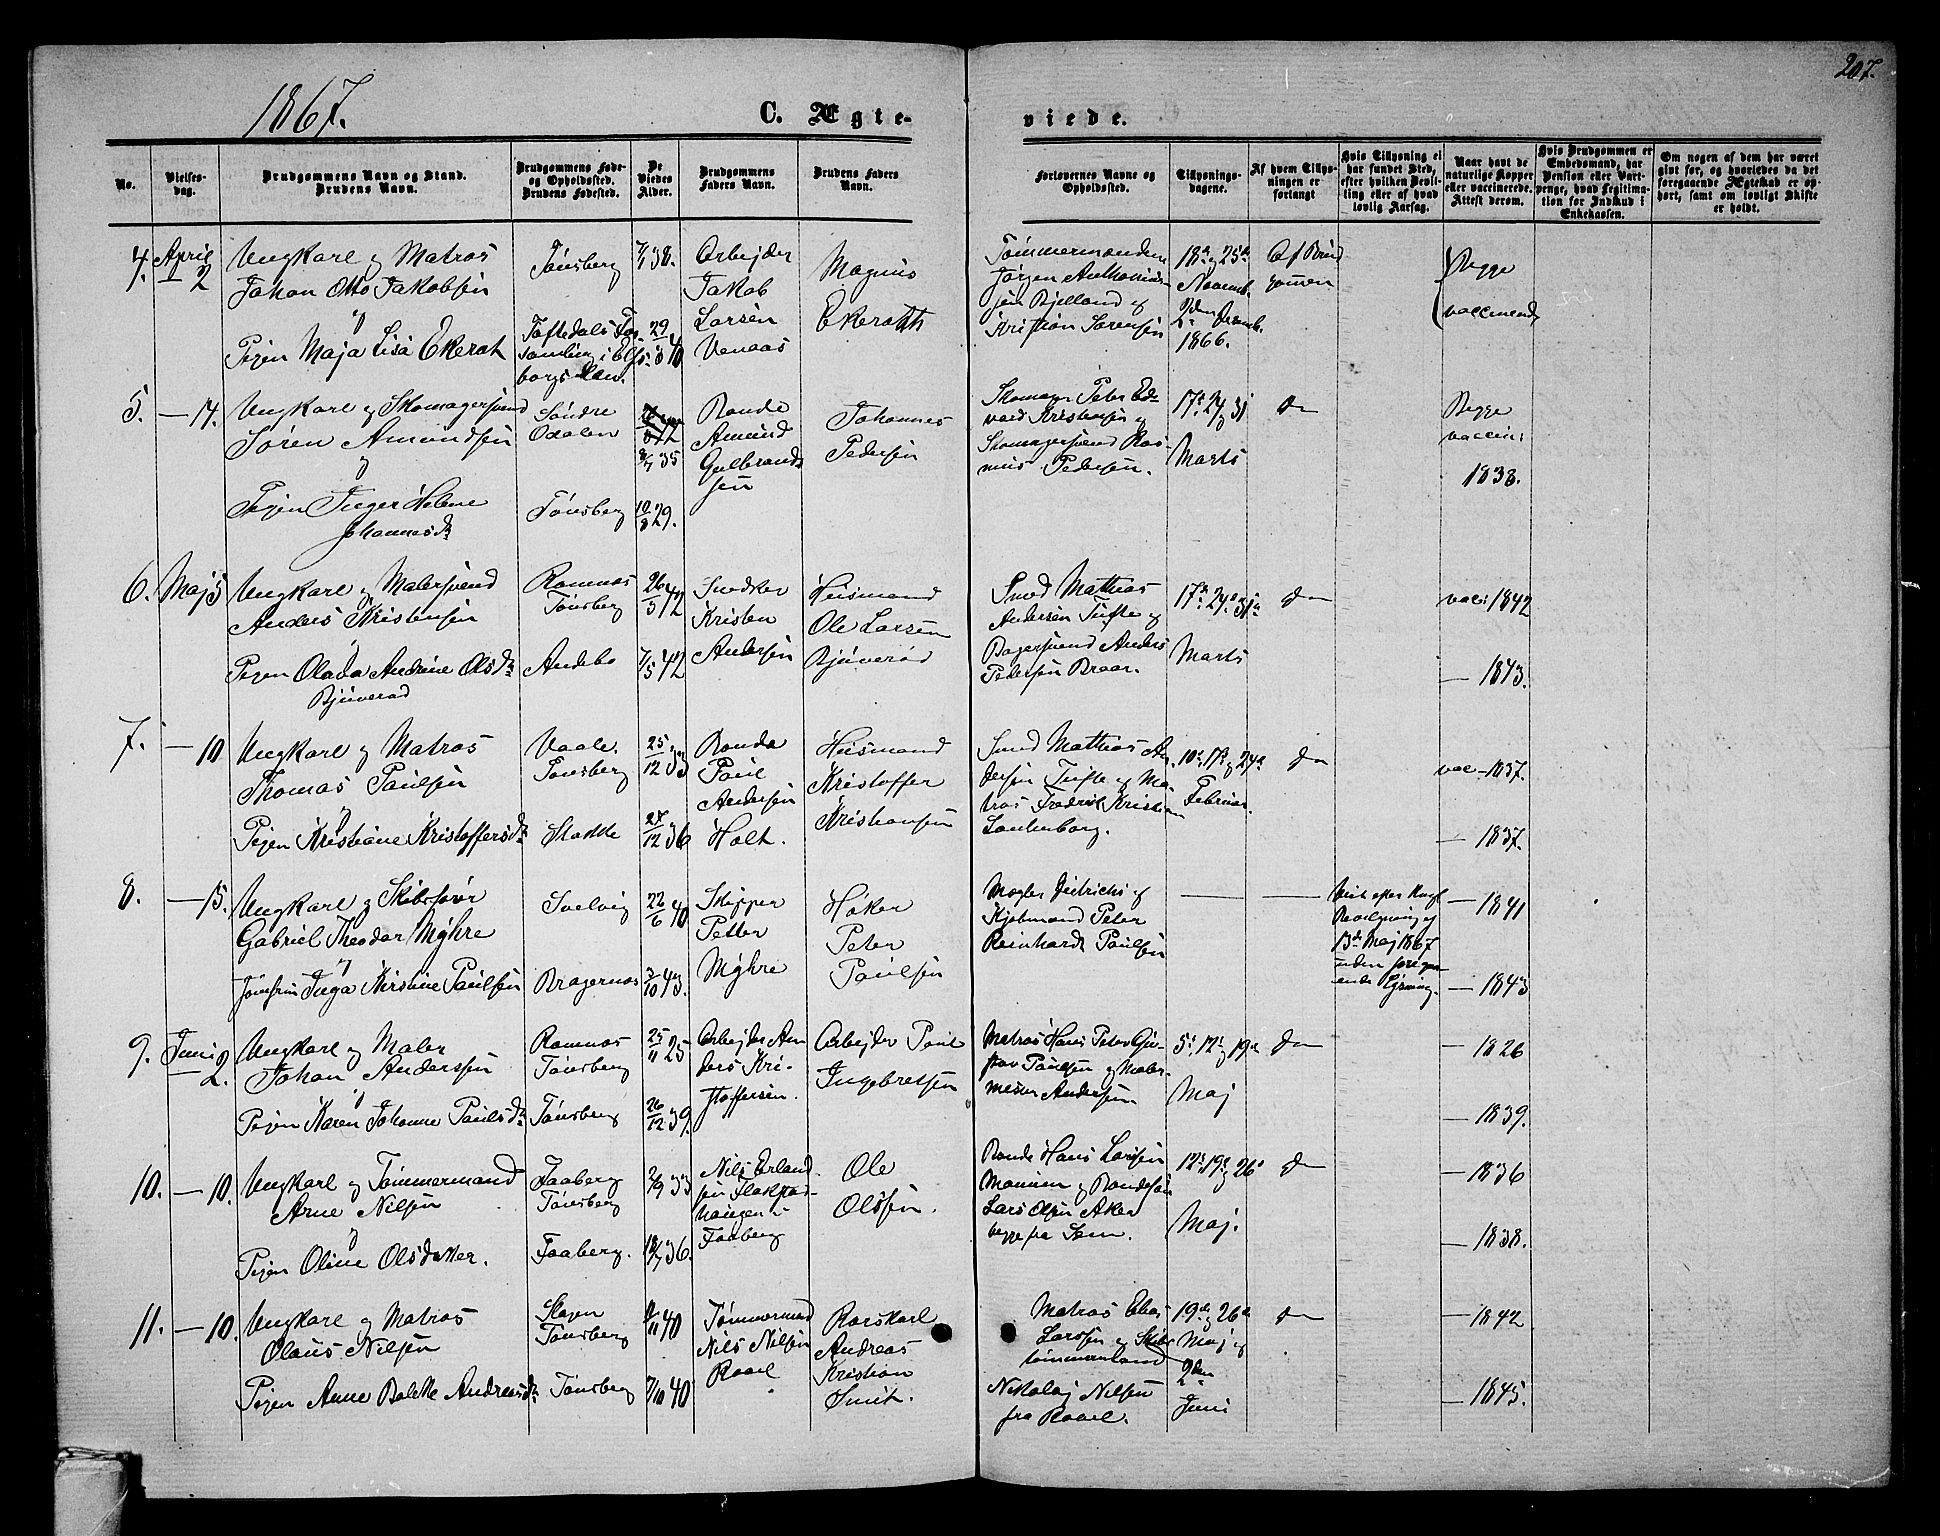 1867.
C. Ægte-
viede.
207.
No.
Vielses-
dag.
Brudgommens Navn og Stand.
Brudens Navn.
Brudgommens Føde-
og Opholdssted.
Brudens Fødested.
De
Viedes
Alder.
Brudgommens
Faders Navn.
Brudens Faders
Navn.
Forlovernes Navne og
Opholdssted.
Tillysnings-
dagene.
Af hvem Tillys-
ningen er
forlangt
Hvis Tillysning ei
har fundet Sted,
efter hvilken Bevil-
ling eller af hvad
lovlig Aarsag.
Naar havt de
naturlige Kopper
eller vaccinerede.
Attest derom.
Hvis Brudgommen er
Embedsmand, har
Pension eller Vart-
penge, hvad Legitima-
tion for Indskud i
Enkekassen.
Om nogen af dem har været
givt før, og hvorledes da det
foregaaende Ægteskab er op-
hørt, samt om lovligt Skifte
er holdt.
4.
April
2
Ungkarl og Matros
Johan Otto Jakobsen
og
Pigen Maja Lisa Ekerot
Tønsberg
Toftedals For-
samling i Elfs-
borgs Læn.
7/1 38.
29/8 40
Arbejder
Jakob
Larsen
Venaas
Magnus
Ekeroth
Tømmermændene
Jørgen Anthonis-
sen Bjelland og
Kristian Sørensen
18de og 25de
Novemb.
2den Decemb.
1866.
Af Brud
gommen
Begge
vaccinerede
5.
— 14.
Ungkarl og Skomagersvend
Søren Amundsen
og
Pigen Inger Helene
Johannesdr
Søndre
Odalen
Tønsberg
8/7 35
10/8 29.
Bonde
Amund
Gulbrand
sen
Johannes
Pedersen
Skomager Peter Ed-
vard Kristensen og
Skomagersvend Ras-
mus Pedersen.
17de 24 og 31
Marts
do
Begge
vaccin:
1838.
6.
Maj 5
Ungkarl og Malersvend
Anders Kristensen
og
Pigen Olava Andrine Olsdr
Bjuverød
Ramnæs
Tønsberg
Andebo
26/3 42
7/5 42
Snedker
Kristen
Andersen
Husmand
Ole Larsen
Bjuverød
Smed Mathias
Andersen Tufte og
Bagersvend Anders
Pedersen Braar.
17de 24de og 31te
Marts
do
vac: 1842
— 1843.
7.
— 10
Ungkarl og Matros
Thomas Paulsen
og
Pigen Kristiane Kristoffersdr
Vaale.
Tønsberg
Stokke
25/12 33
27/12 36
Bonde
Paul
Andersen
Holt.
Husmand
Kristoffer
Kristiansen
Smed Mathias An
dersen Tufte og Ma-
tros Fredrik Kristian
10de 17de og 24de
Februar.
do
vac- 1837.
— 1837.
8.
— 15.
Ungkarl og Skibsfører
Gabriel Theodor Myhre
og
Jomfrue Inga Kirstine Paulsen
Svelvig
Bragernes
22/6 40
3/10 43.
Skipper
Petter
Myhre
Høker
Peter
Paulsen
Mægler Deitrichs og
Kjøbmand Peter
Reinhardt Paulsen
—
—
Viet efter Kngl
Bevilgning af
13de Maj 1867
uden foregaa-
ende Lysning.
— 1841
— 1843
9.
Juni
2.
Ungkarl og Maler
Johan Anderssen
og
Pigen Karen Johanne Paulsdr
Ramnæs
Tønsberg
Tønsberg
25/11 25
26/12 39.
Arbejder An
ders Kri-
stoffersen.
Arbejder Paul
Ingebretsen
Matros Hans Peter Gu-
stav Paulsen og Maler-
mester Andersen
5te 12te og 19de
Maj
do
— 1826
— 1839.
10.
— 10.
Ungkarl og Tømmermand
Arne Nilsen
og
Pigen Oline Olsdatter.
Faaberg
Tønsberg
Faaberg.
2/9 33
18/7 36.
Nils Erland-
sen
haugen i
Faaberg
Ole
Olssen.
Bonde Hans Larssen
og Bondesøn
Lars Olsen Aker
begge fra Sem.
12te 19de og 26de
Maj.
do
— 1836
— 1838.
11.
— 10.
Ungkarl og Matros
Olaus Nilsen
Pigen Anne Bolette Andreasdr
Skogen
Tønsberg
Tønsberg
11 40
7/10 40
Tømmermand
Nils Nilsen
Raael
Rorskarl
Andreas
Kristian
Smit.
Matros Elias
Larssen og Skibs
tømmermand
Nikolaj Nilsen
fra Raael.
19de og 26de
Maj og
2den
Juni
do
— 1842
— 1845.